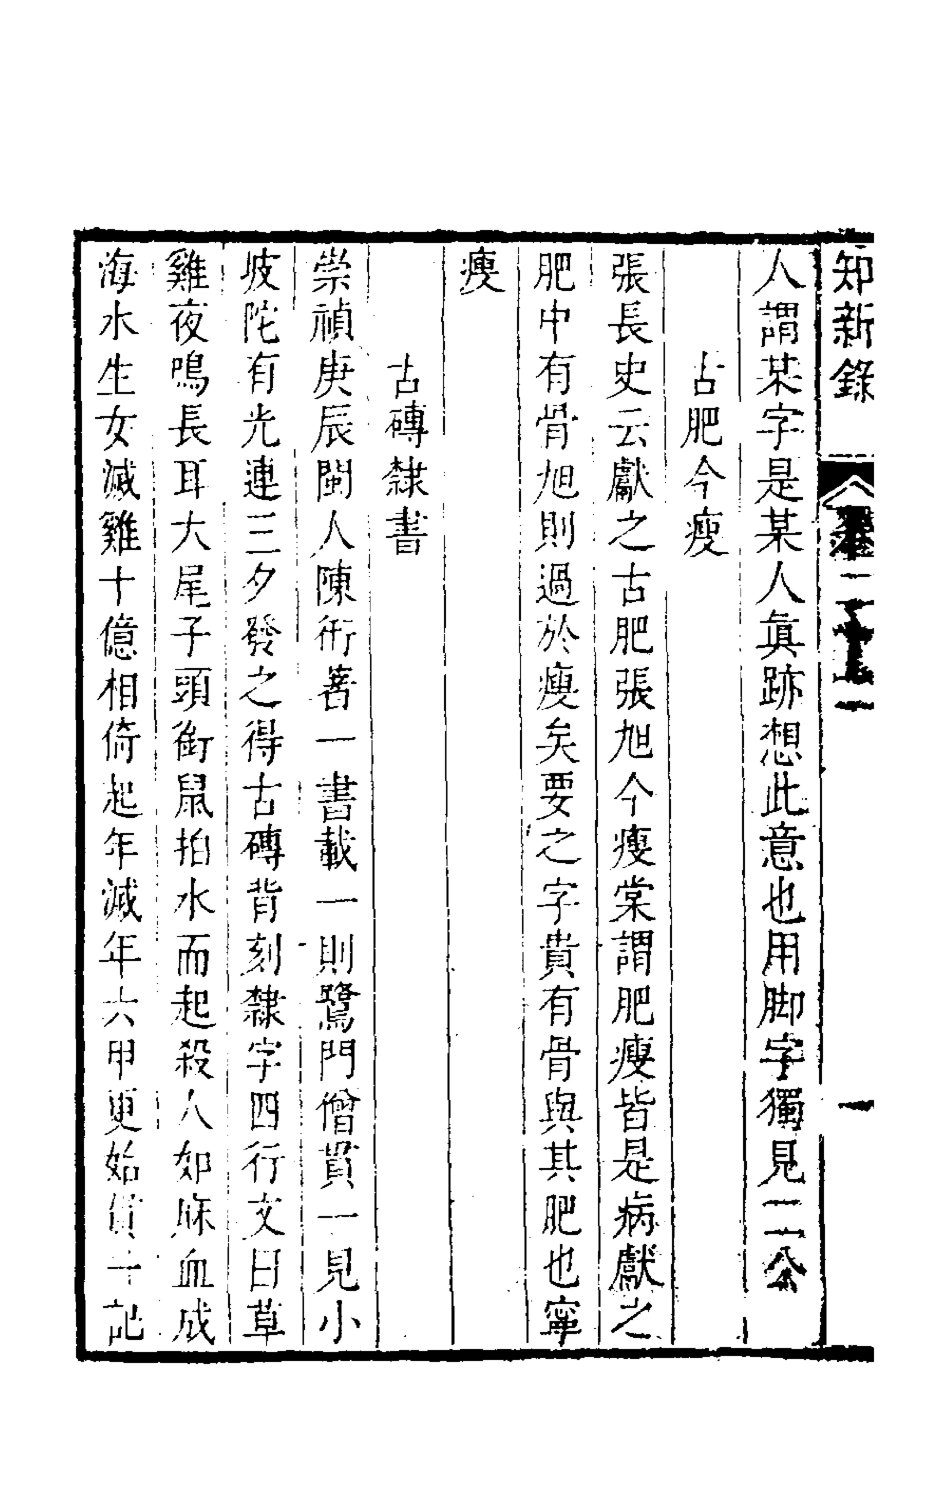 知新錄 卷二十一 一
人謂某字是某人眞跡想此意也用脚字獨見二公
古肥今瘦
張長史云獻之古肥張旭今瘦棠謂肥瘦皆是病獻之
肥中有骨旭則過於瘦矣要之字貴有骨與其肥也寧
瘦
古磚隸書
崇禎庚辰閩人陳衎著一書載一則鷺門僧貫一見小
坡陀有光連三夕發之得古磚背刻隸字四行文曰草
雞夜鳴長耳大尾子頭銜鼠拍水而起殺人如麻血成
海水生女滅雞十億相倚起年滅年六甲更始貫一記